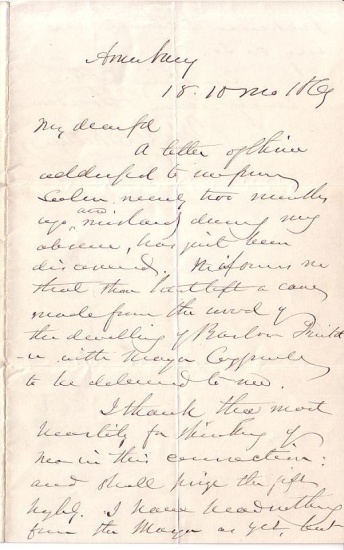 Amesbury
18. 10 mo 1869
My dear frd
A letter of thine
addressed to me from
Salem nearly two months
ago, and mislaid during my
absence, has just been
discovered. It informs me
that thou hast left a cane
made from the wood of
the dwelling of Barbara
with Mayor
to be delivered to me.
I thank thee most
heartily for thinking of
me in this connection:
and shall prize the gift
highly. I have heard nothing
from the Mayor as yet, but